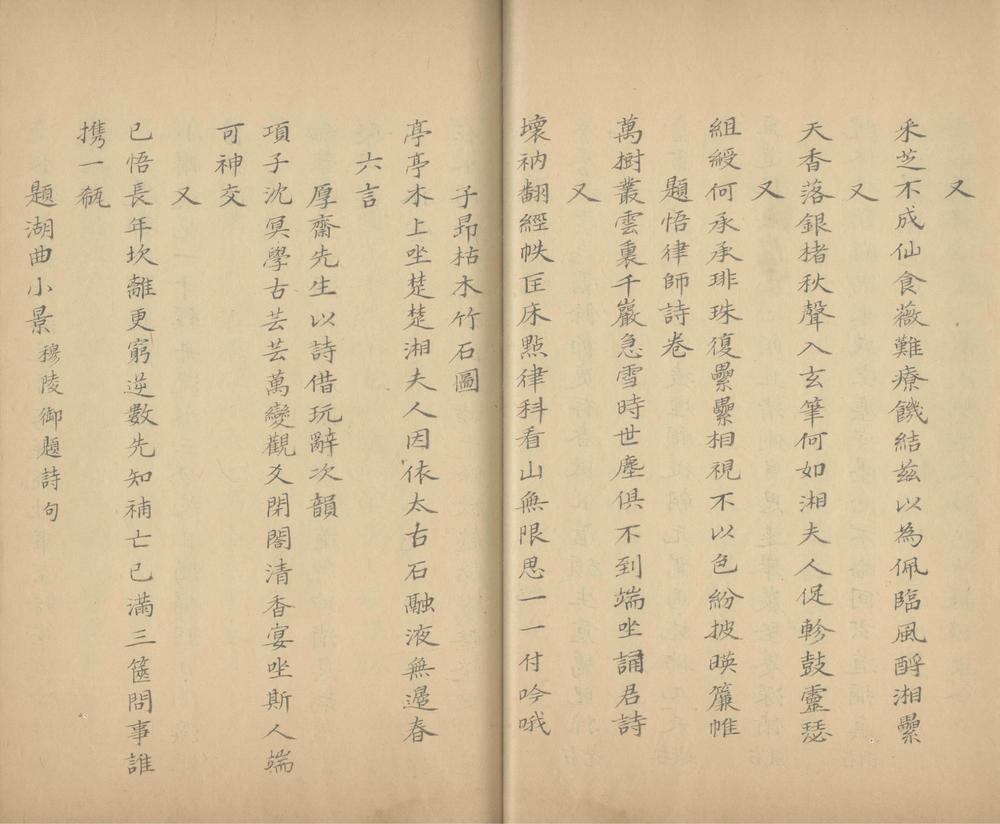 又
采芝不成仙食薇難療饑結茲以為佩臨風酹湘纍
又
天香落銀楮秋聲入玄筆何如湘夫人促軫鼓靈瑟
又
組綬何承承琲珠復纍纍相視不以色紛披暎簾帷
題悟律師詩卷
萬樹叢雲裏千巖急雪時世塵俱不到端坐誦君詩
又
壞衲翻經帙匡床點律科看山無限思一一付吟哦
子昂枯木竹石圖
亭亭木上坐楚楚湘夫人因依太古石融液無邊春
六言
厚齋先生以詩借玩辭次韻
項子沈冥學古芸芸萬變觀爻閉閤清香宴坐斯人端
可神交
又
已悟長年坎離更窮逆數先知補亡已滿三篋問事誰
携一瓻
題湖曲小景穆陵御題詩句